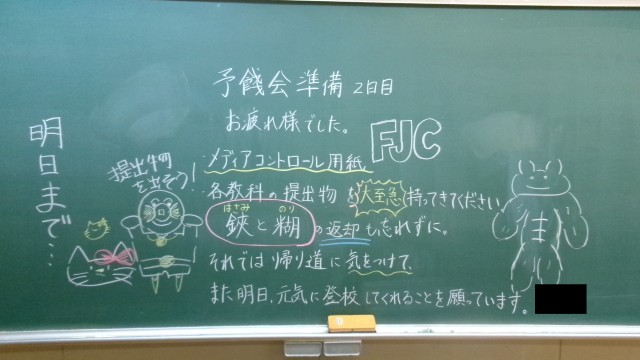 予餞会準備 2日目
お疲れ様でした。
FJC
メディアコントロール用紙
各教科の提出物を大至急持ってきてください
はさみ のり
鋏と糊の返却も忘れずに。
それでは帰り道に気をつけて、
また明日、元気に登校してくれることを願っています。
明日まで…
提出物
を出そう!